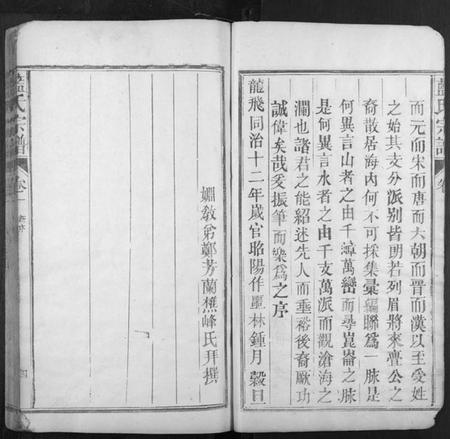 藍氏宗譜
卷
而元而宋而唐而六朝而晋而漢以至受姓
之始其支分派别皆朗若列眉將來亹公之
裔散居海內何不可採集彙編聯爲一脉是
何異言山者之由千嶂萬巒而尋崑崙之脉
是何異言水者之由千支萬派而觀滄海之
瀾也諸君之能紹述先人而垂裕後裔厥功
誠偉矣哉爰振筆而樂爲之序
龍飛同治十二年歲官昭陽作噩林鍾月穀旦
姻教弟鄭芳蘭樵峰氏拜撰
藍氏宗譜
卷一